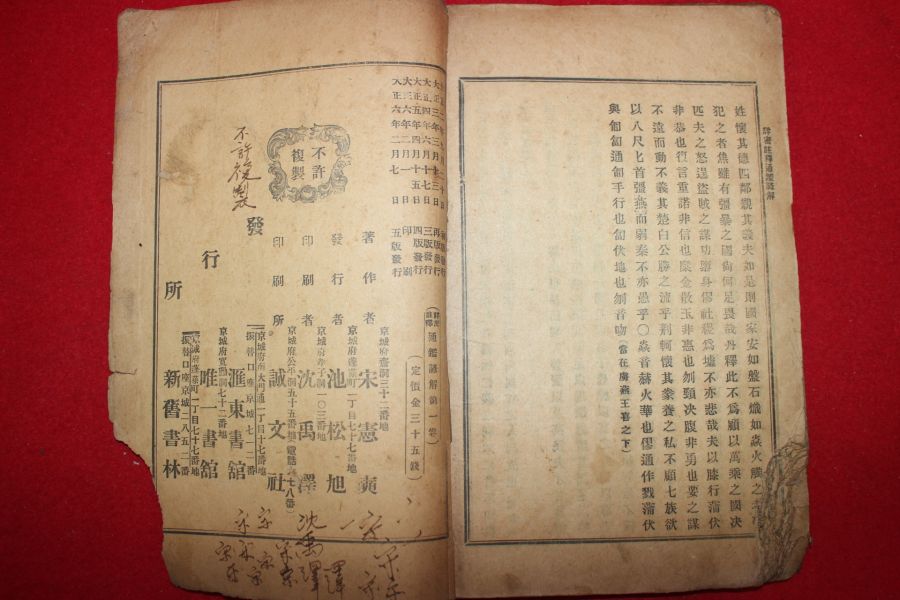 詳密註釋通鑑諺解
姓懷其德四鄰親其義夫如是則國家安如盤石熾如焱火觸之
犯之者焦雖有彊暴之國尙何足畏哉丹釋此不爲顧以萬乘之國決
匹夫之怒逞盜賊之謀功隳身僇社稷爲墟不亦悲哉夫以膝行蒲伏
非恭也復言重諾非信也糜金散玉非惠也刎頸決腹非勇也要之謀
不遠而動不義其楚白公勝之流乎荊軻懷其豢養之私不顧七族欲
以八尺匕首彊燕而弱秦不亦愚乎〇焱音赫火華也僇通作戮蒲伏
與匍匐通匍手行也匐伏地也刎音吻(當在虜燕王喜之下)
大正四年六月十七日 三版發行
大正五年四月十三日 四版發行
大正六年二月一日 印刷
大正六年二月七日 五版發行
詳密註釋 通鑑諺解第一卷
(定價金三十五錢)
不許複製
京城府齋洞三十二番地
著作者 宋憲奭
京城府蓬萊町一丁目七十七番地
發行者 池松旭
京城府年子洞一〇三番地
印刷者 沈禹澤
京城府公平洞五十五番地
印刷所 誠文社
發行所
京城府南大門通一丁目十七番地
滙東書舘
振替口座京城七一二番
京城府寬勳洞七十二番地
唯一書舘
京城府蓬萊町一丁目七十七番地
新舊書林
振替口座京城二八五二番
不許複製
沈禹澤
澤
宋
宋
宋